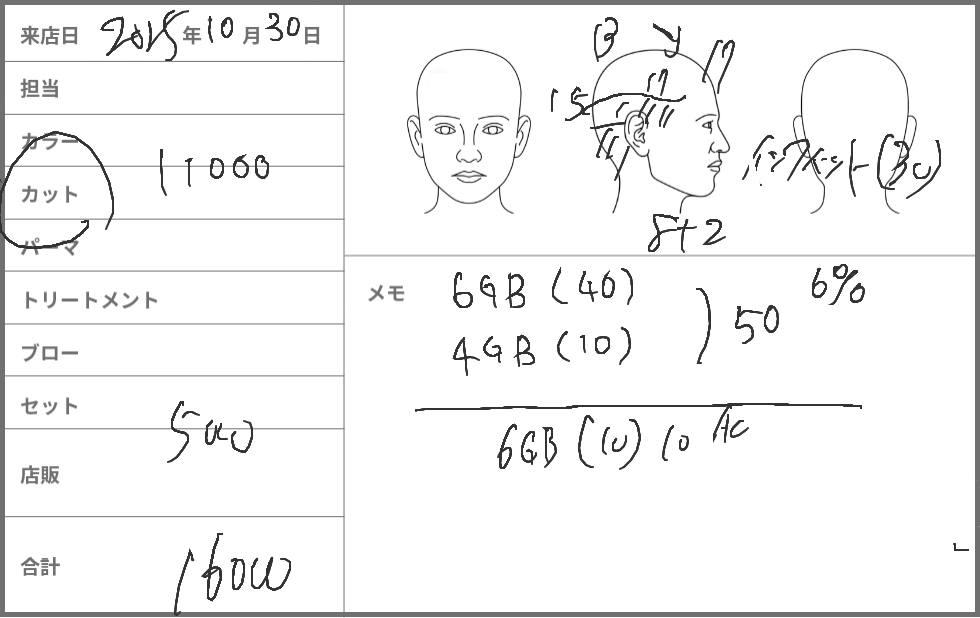 来店日 2025年10月30日
担当
カラー
11000
カット
パーマ
トリートメント
ブロー
セット
5000
店販
合計 16000
B
17
15
17
(30)
8+2
メモ
6GB (40)
4GB (10)
50
6%
6GB (10) 10 AC